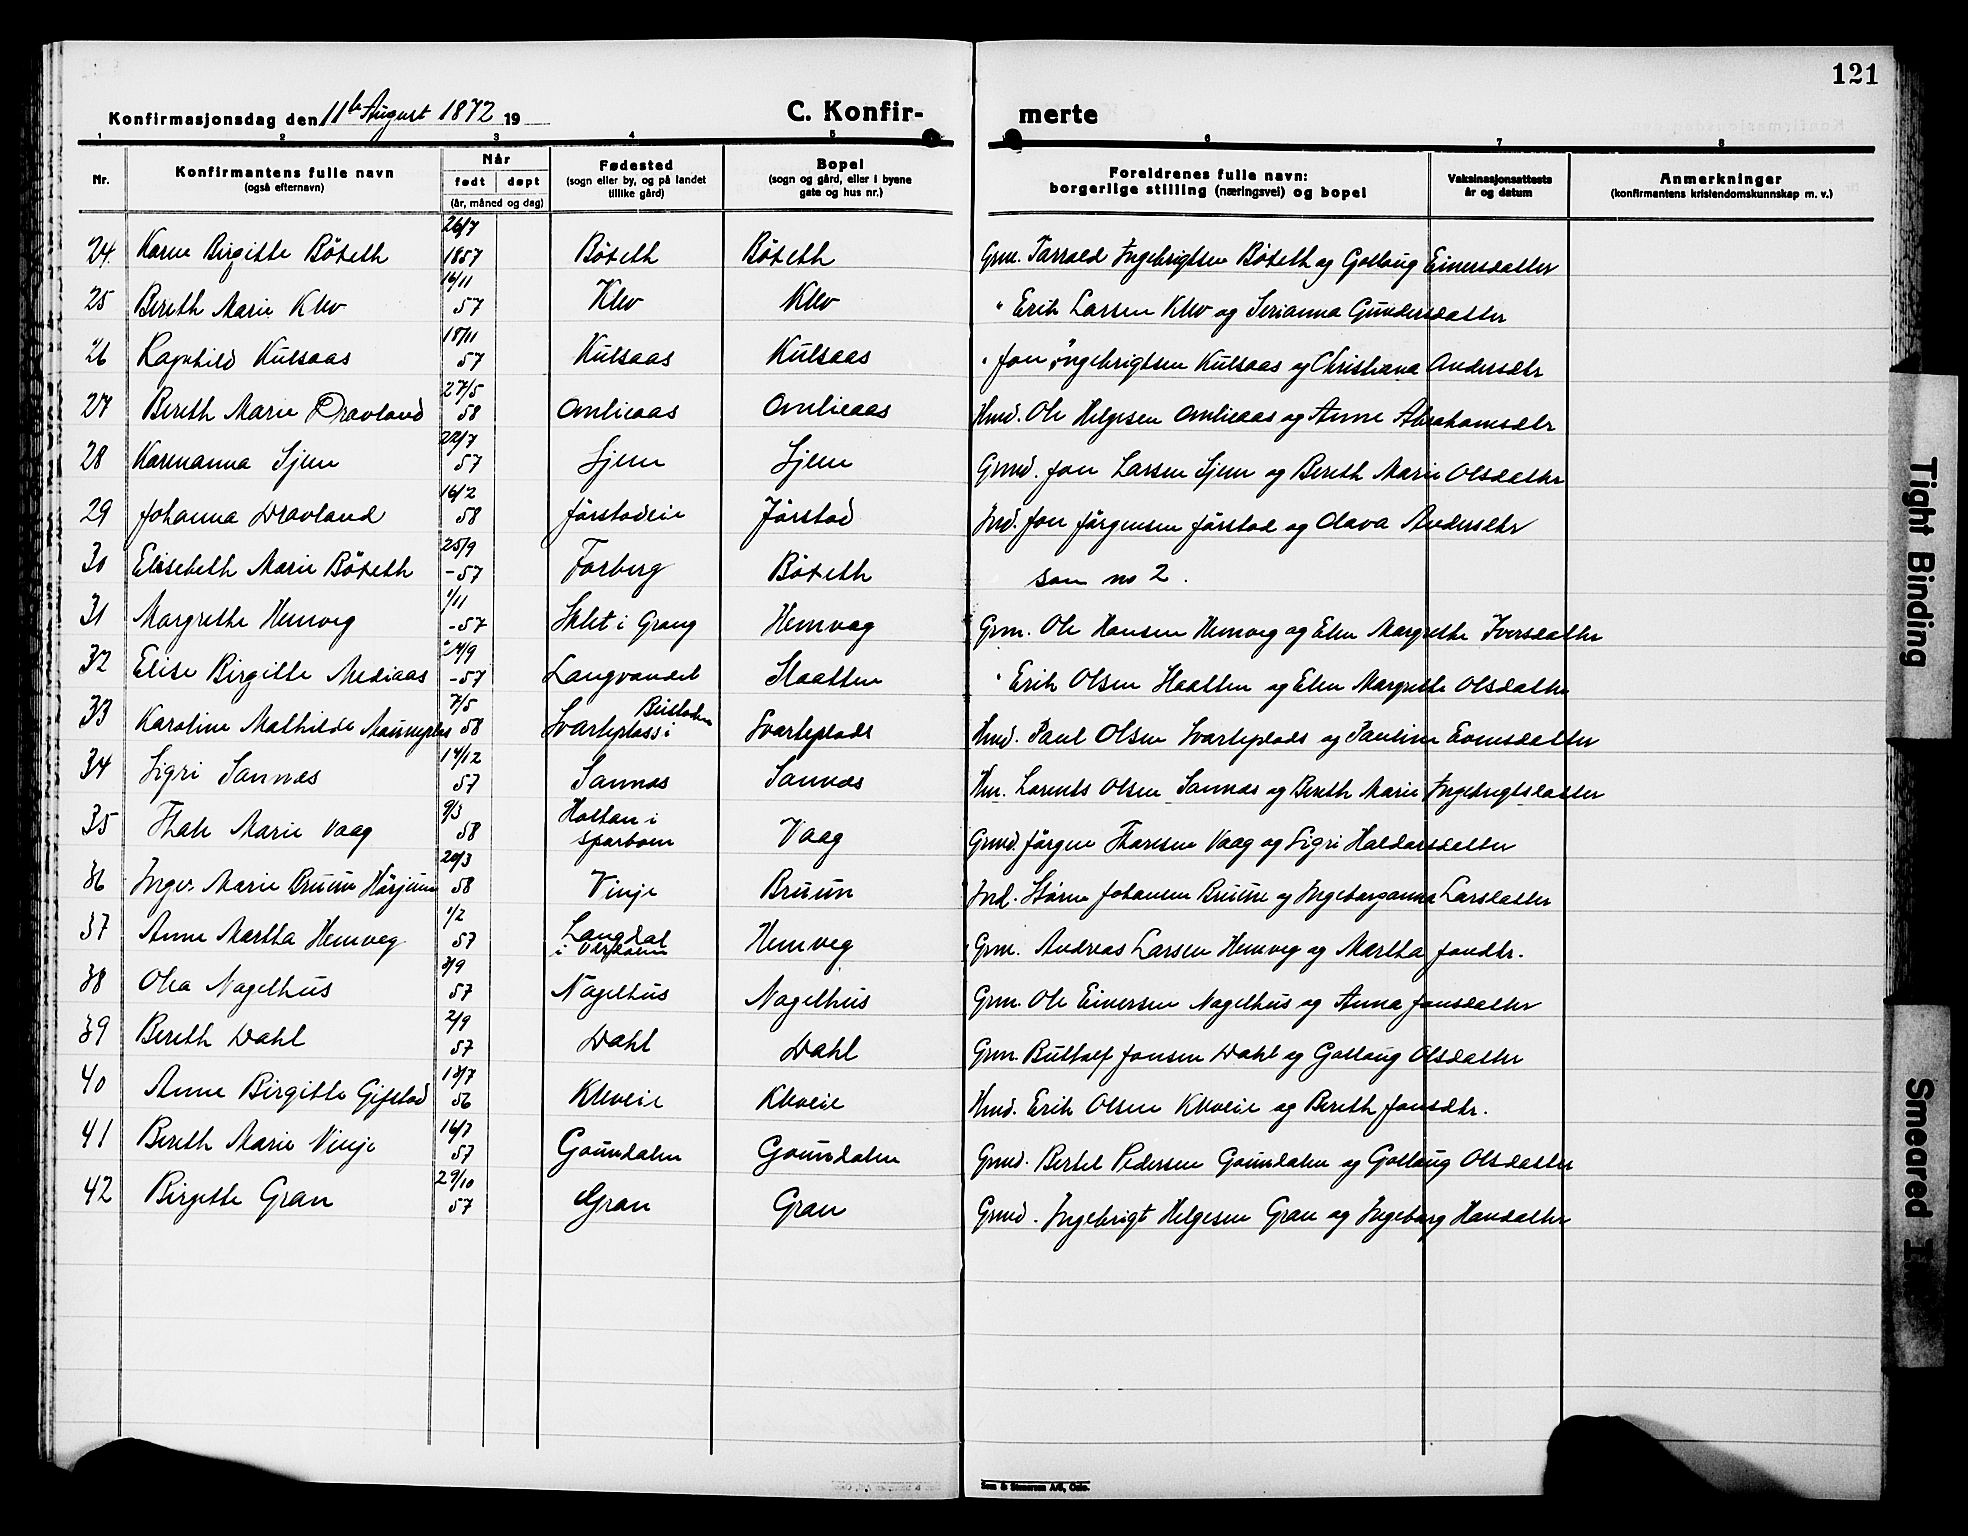 121
Konfirmasjonsdag den 11te August 1872 19
C. Konfir-
merte
1 2 3 4 5 6 7 8
Nr.
Konfirmantens fulle navn
(også efternavn)
Når
født døpt
(år, måned og dag)
Fødested
(sogn eller by, og på landet
tillike gård)
Bopel
(sogn og gård, eller i byene
gate og hus nr.)
Foreldrenes fulle navn:
borgerlige stilling (næringsvei) og bopel
Vaksinasjonsattests
år og datum
Anmerkninger
(konfirmantens kristendomskunnskap m. v.)
24. Karen Birgitte Böleth 26/7 1857 Böleth Böleth Grm. Ingebrigtsen Böleth og Gollaug Einersdatter
25 Bereth Marie Klev 16/11 57 Klev Klev " Erik Larsen Klev og Serianna Gundersdatter
26 Ragnhild Kulsaas 18/11 57 Kulsaas Kulsaas " Jon Ingebrigtsen Kulsaas og Christiana Andersdtr
27 Bereth Marie Dravland 27/5 58 Omlieaas Omlieaas Hmd. Ole Helgesen Omlieaas og Anne Abrahamsdtr
28 Karenanna Sjem 22/7 57 Sjem Sjem Grmd. Jon Larsen Sjem og Bereth Marie Olsdatter
29 Johanna Dravland 16/2 58 Jørstadeie Jørstad Ind. Jon Jørgensen Jørstad og Olava Andersdtr
30 Elisebeth Marie Böleth 25/9 -57 Forberg Böleth som no 2.
31 Margrethe Hemveg 1/11 -57 Sklet i Grong Hemvag Grm. Ole Hansen Hemveg og Elen Margrethe Iversdatter
32 Elise Birgitte Mediaas 24/9 -57 Langvandet Haatten " Erik Olsen Haatten og Elen Margrethe Olsdatter
33 Karoline Mathilde 7/5 58 Svarteplass i Beistaden Svarteplads Hmd. Paul Olsen Svarteplads og Pauline Evensdatter
34 Sigri Sannæs 14/12 57 Sannæs Sannæs Hm. Lorents Olsen Sannæs og Bereth Marie Ingebrigtsdatter
35 Thale Marie Vaag 9/3 58 Holtan i Sparboen Vaag Grmd. Jørgen Thoresen Vaag og Sigri Haldorsdatter
36 Inger Marie Bruun 20/3 58 Vinje Bruun Ind. Johansen Bruun og Ingeborganna Larsdatter
37 Anne Martha Hemveg 1/2 57 Langdal i Værdalen Hemveg Grm. Andreas Larsen Hemveg og Martha Jondtr.
38 Olea Nagelhus 3/9 57 Nagelhus Nagelhus Grm. Ole Einersen Nagelhus og Anna Jonsdatter
39 Bereth Dahl 2/9 57 Dahl Dahl Grm. Buttolf Jonsen Dahl og Gollaug Olsdatter
40 Anne Birgitte Gifstad 13/7 56 Kleveie Kleveie Hmd. Erik Olsen Kleveie og Bereth Jonsdtr.
41 Bereth Marie Vinje 16/7 57 Gaundalen Gaundalen Grmd. Bertel Pedersen Gaundalen og Gollaug Olsdatter
42 Birgitte Gran 29/10 57 Gran Gran Grmd. Ingebrigt Helgesen Gran og Ingeborg Handatter
Sem & Stenersen A/S, Oslo.
Tight Binding
Smeared